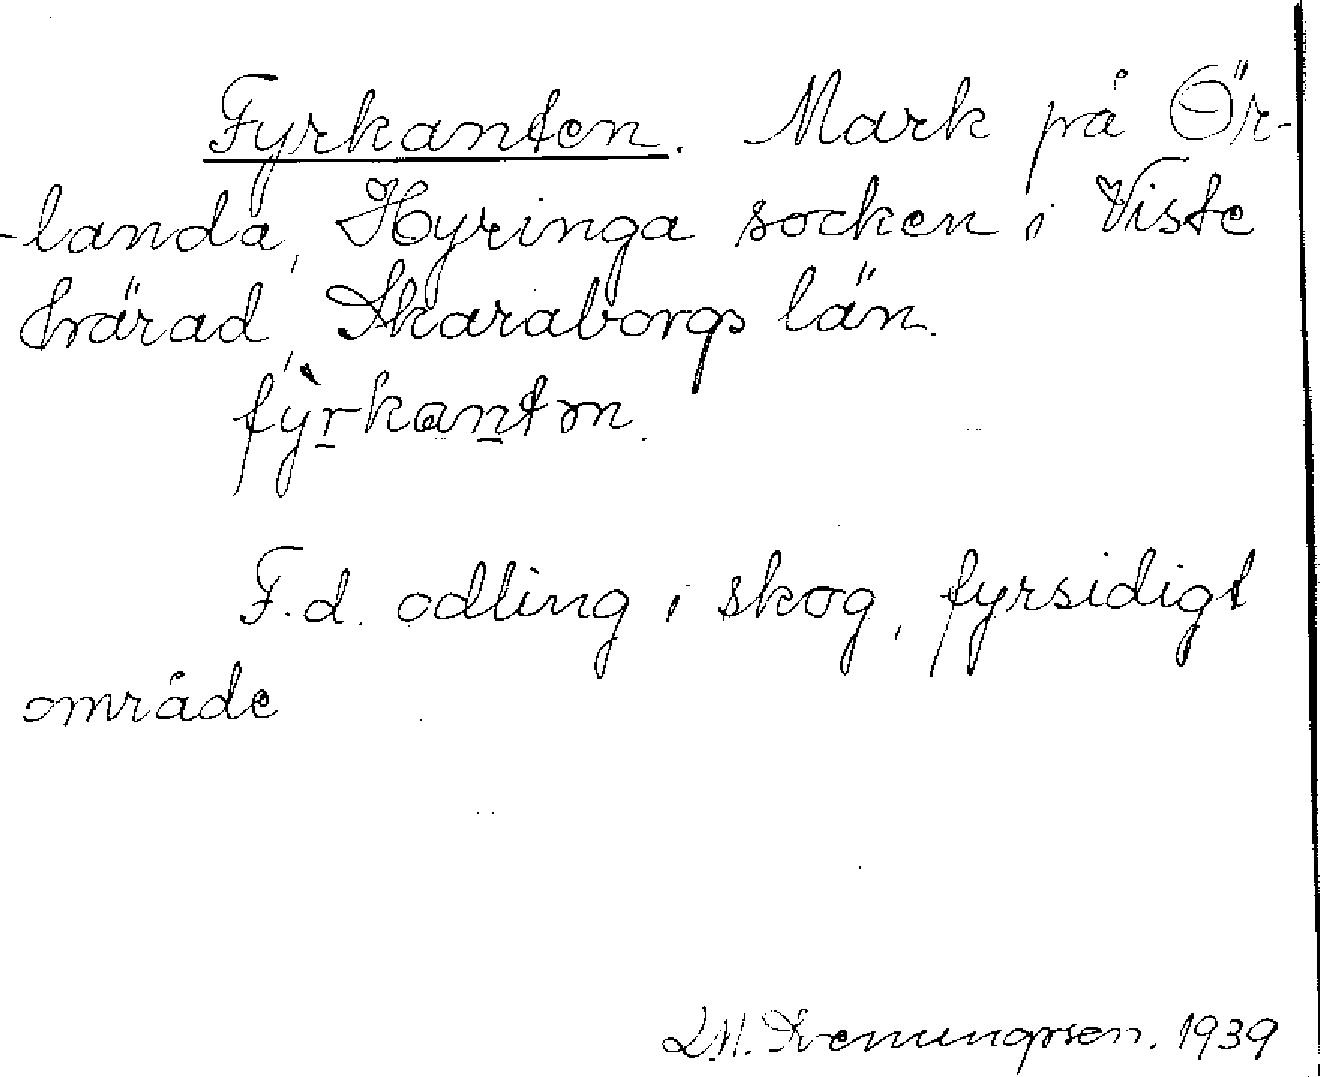 Fyrkanten. Mark på Ör-
-landa, Hyringa socken i Viste
härad, Skaraborgs län.
fỳrkantən.
F.d. odling i skog, fyrsidigt
område
1939